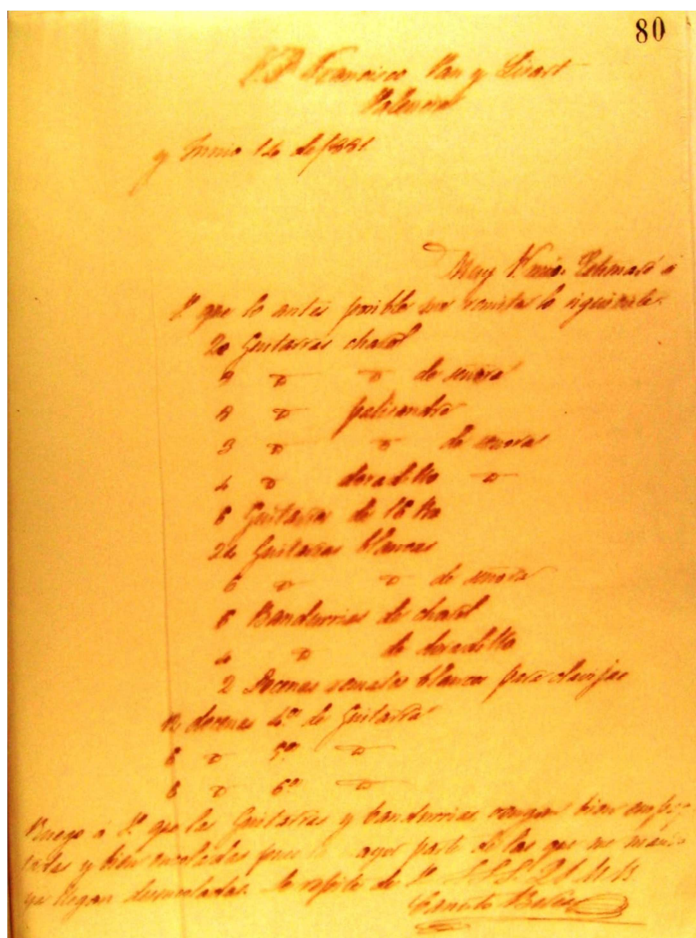 80
Francisco Pau y Lisart
Valencia
y Junio 14 de 1881
Muy Sr. mio: Estimaré á
V. que lo antes posible me remita lo siguiente
20 Guitarras charol
de señora
palisandro
3 " " de señoras
4 " doradillo "
6 Guitarras de 16
24 Guitarras blancas
6 " " de señora
6 Bandurrias de charol
4 " de doradillo
2 Docenas blancas para clavijas
12 docenas 4as de Guitarra
6 " 5as "
6 " 6as "
Ruego á V. que las Guitarras y bandurrias vengan bien
y bien encoladas pues la mayor parte de las que me
llegan desencoladas. Se repite de V. S.S.S. Q.B.S.M.